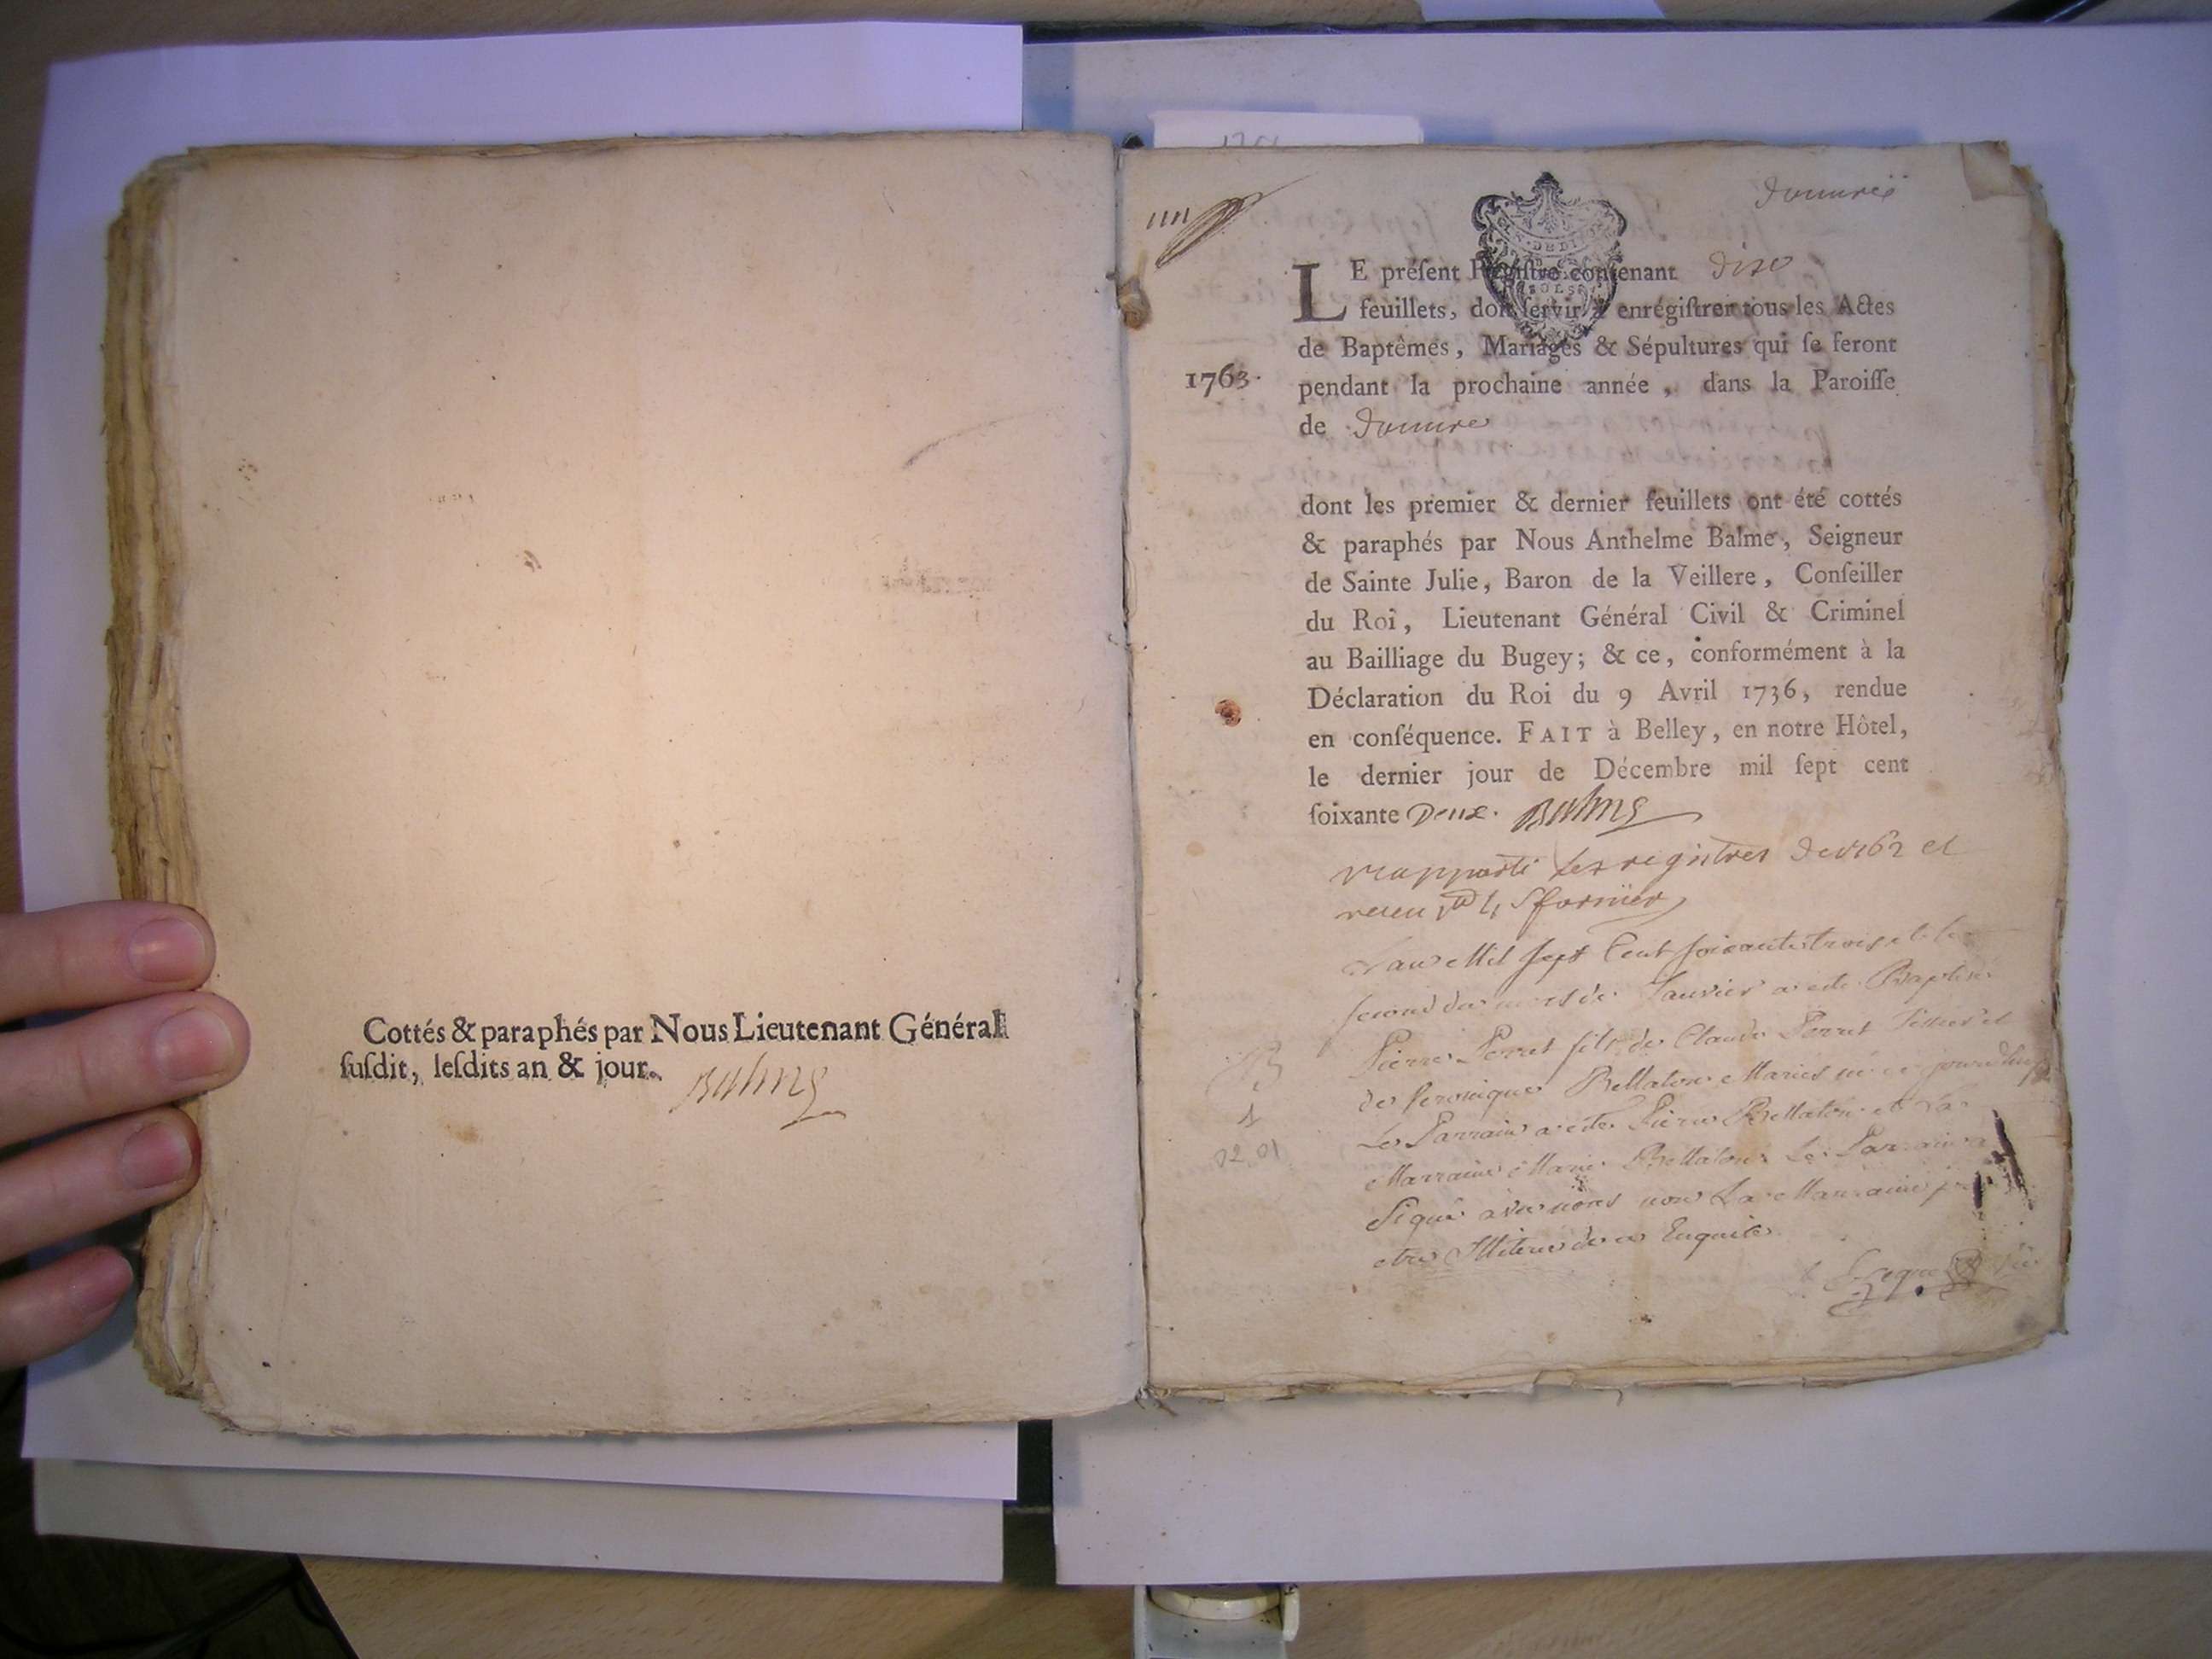 Cottés & paraphés par Nous Lieutenant Général
ſuſdit, leſdits an & jour.
Balme
douvres
LE préſent Regiſtre contenant dix
feuillets, doit ſervir à enrégiſtrer tous les Actes
de Baptêmes, Mariages & Sépultures qui ſe feront
1763.
pendant la prochaine année, dans la Paroiſſe
de douvre
dont les premier & dernier feuillets ont été cottés
& paraphés par Nous Anthelme Balme, Seigneur
de Sainte Julie, Baron de la Veillere, Conſeiller
du Roi, Lieutenant Général Civil & Criminel
au Bailliage du Bugey; & ce, conformément à la
Déclaration du Roi du 9 Avril 1736, rendue
en conſéquence. FAIT à Belley, en notre Hôtel,
le dernier jour de Décembre mil ſept cent
ſoixante Deux. Balme
rapporté les registres de 1762 et
receu
L'an Mil sept Cent soixante trois et le
second du mois de Janvier a eté Baptisé
Pierre Perret fils de Claude Perret Tissier et
B
de Veronique Bellaton Mariés né ce jourdhuy
1
Le Parrain a eté Pierre Bellaton et La
02 01
Marraine Marie Bellaton Le Parrain a
Signé avec nous non La Marraine
etre Illiterée de ce Enquise